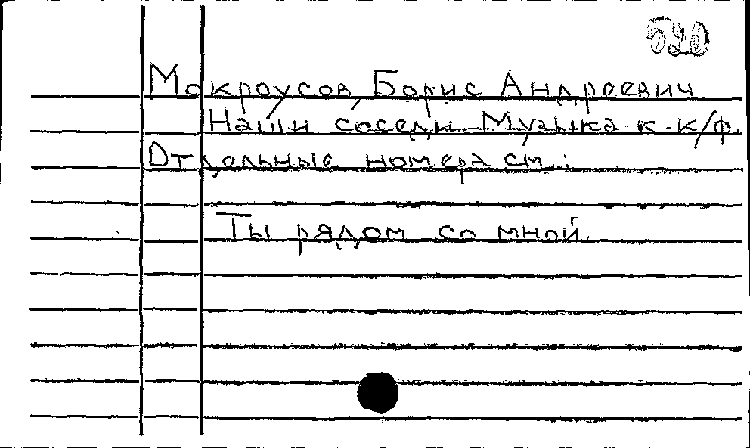 520
Мокроусов, Борис Андреевич
Наши соседи. Музыка к к/ф.
Отдельные номера см.:
Ты рядом со мной.